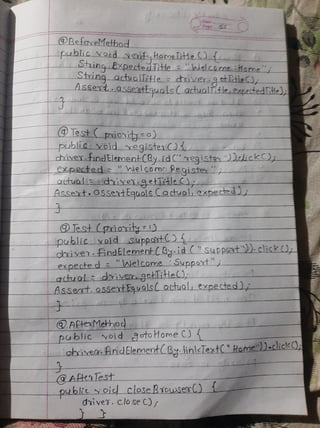 @BeforeMethod
public void verifyHomeTitle() {
String ExpectedTitle = "Welcome: Home";
String actualTitle = driver.getTitle();
Assert.assertEquals(actualTitle, expectedTitle);
}
@Test (priority=0)
public void register() {
driver.findElement(By.id("register")).click();
expected = "Welcome: Register";
actual = driver.getTitle();
Assert.assertEquals(actual, expected);
}
@Test (priority=1)
public void support() {
driver.findElement(By.id("support")).click();
expected = "Welcome: Support";
actual = driver.getTitle();
Assert.assertEquals(actual, expected);
}
@AfterMethod
public void gotoHome() {
driver.findElement(By.linkText("Home")).click();
}
@AfterTest
public void closeBrowser() {
driver.close();
} }